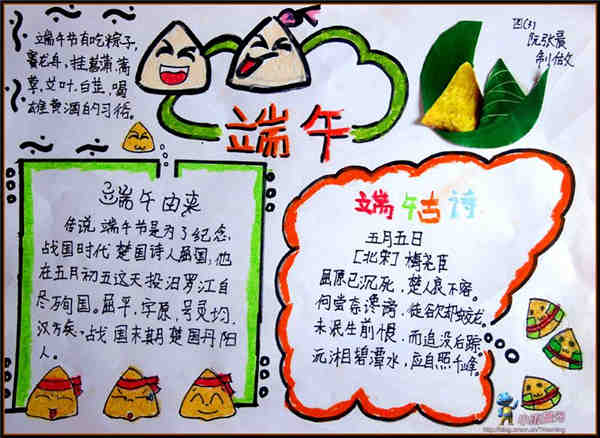 端午节有吃粽子,
赛龙舟,挂菖蒲,蒿
草,艾叶,白芷,喝
雄黄酒的习俗。
端午
四(3)
阮张晨
端午由来
传说端午节是为了纪念,
战国时代楚国诗人屈国,他
在五月初五这天投汨罗江自
尽殉国。屈平,字原,号灵均,
汉方矣。战国末期楚国丹阳
人。
端午古诗
五月五日
[北宋]梅尧臣
屈原已沉死,楚人哀不容。
何尝奈谗谤,徒欲却蛟龙。
未泯生前恨,而追没后踪。
沅湘碧潭水,应自照千峰。